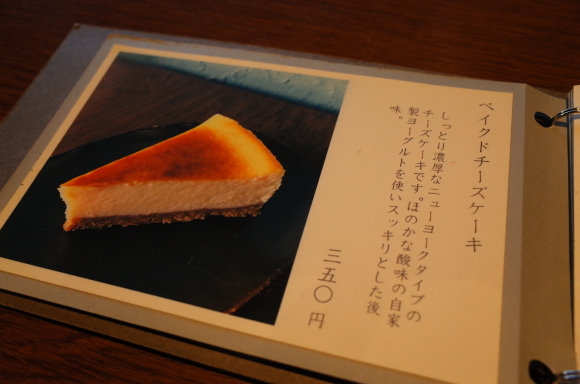 ベイクドチーズケーキ
しっとり濃厚なニューヨークタイプの
チーズケーキです。ほのかな酸味の自家
製ヨーグルトを使いスッキリとした後
味。
三五〇円